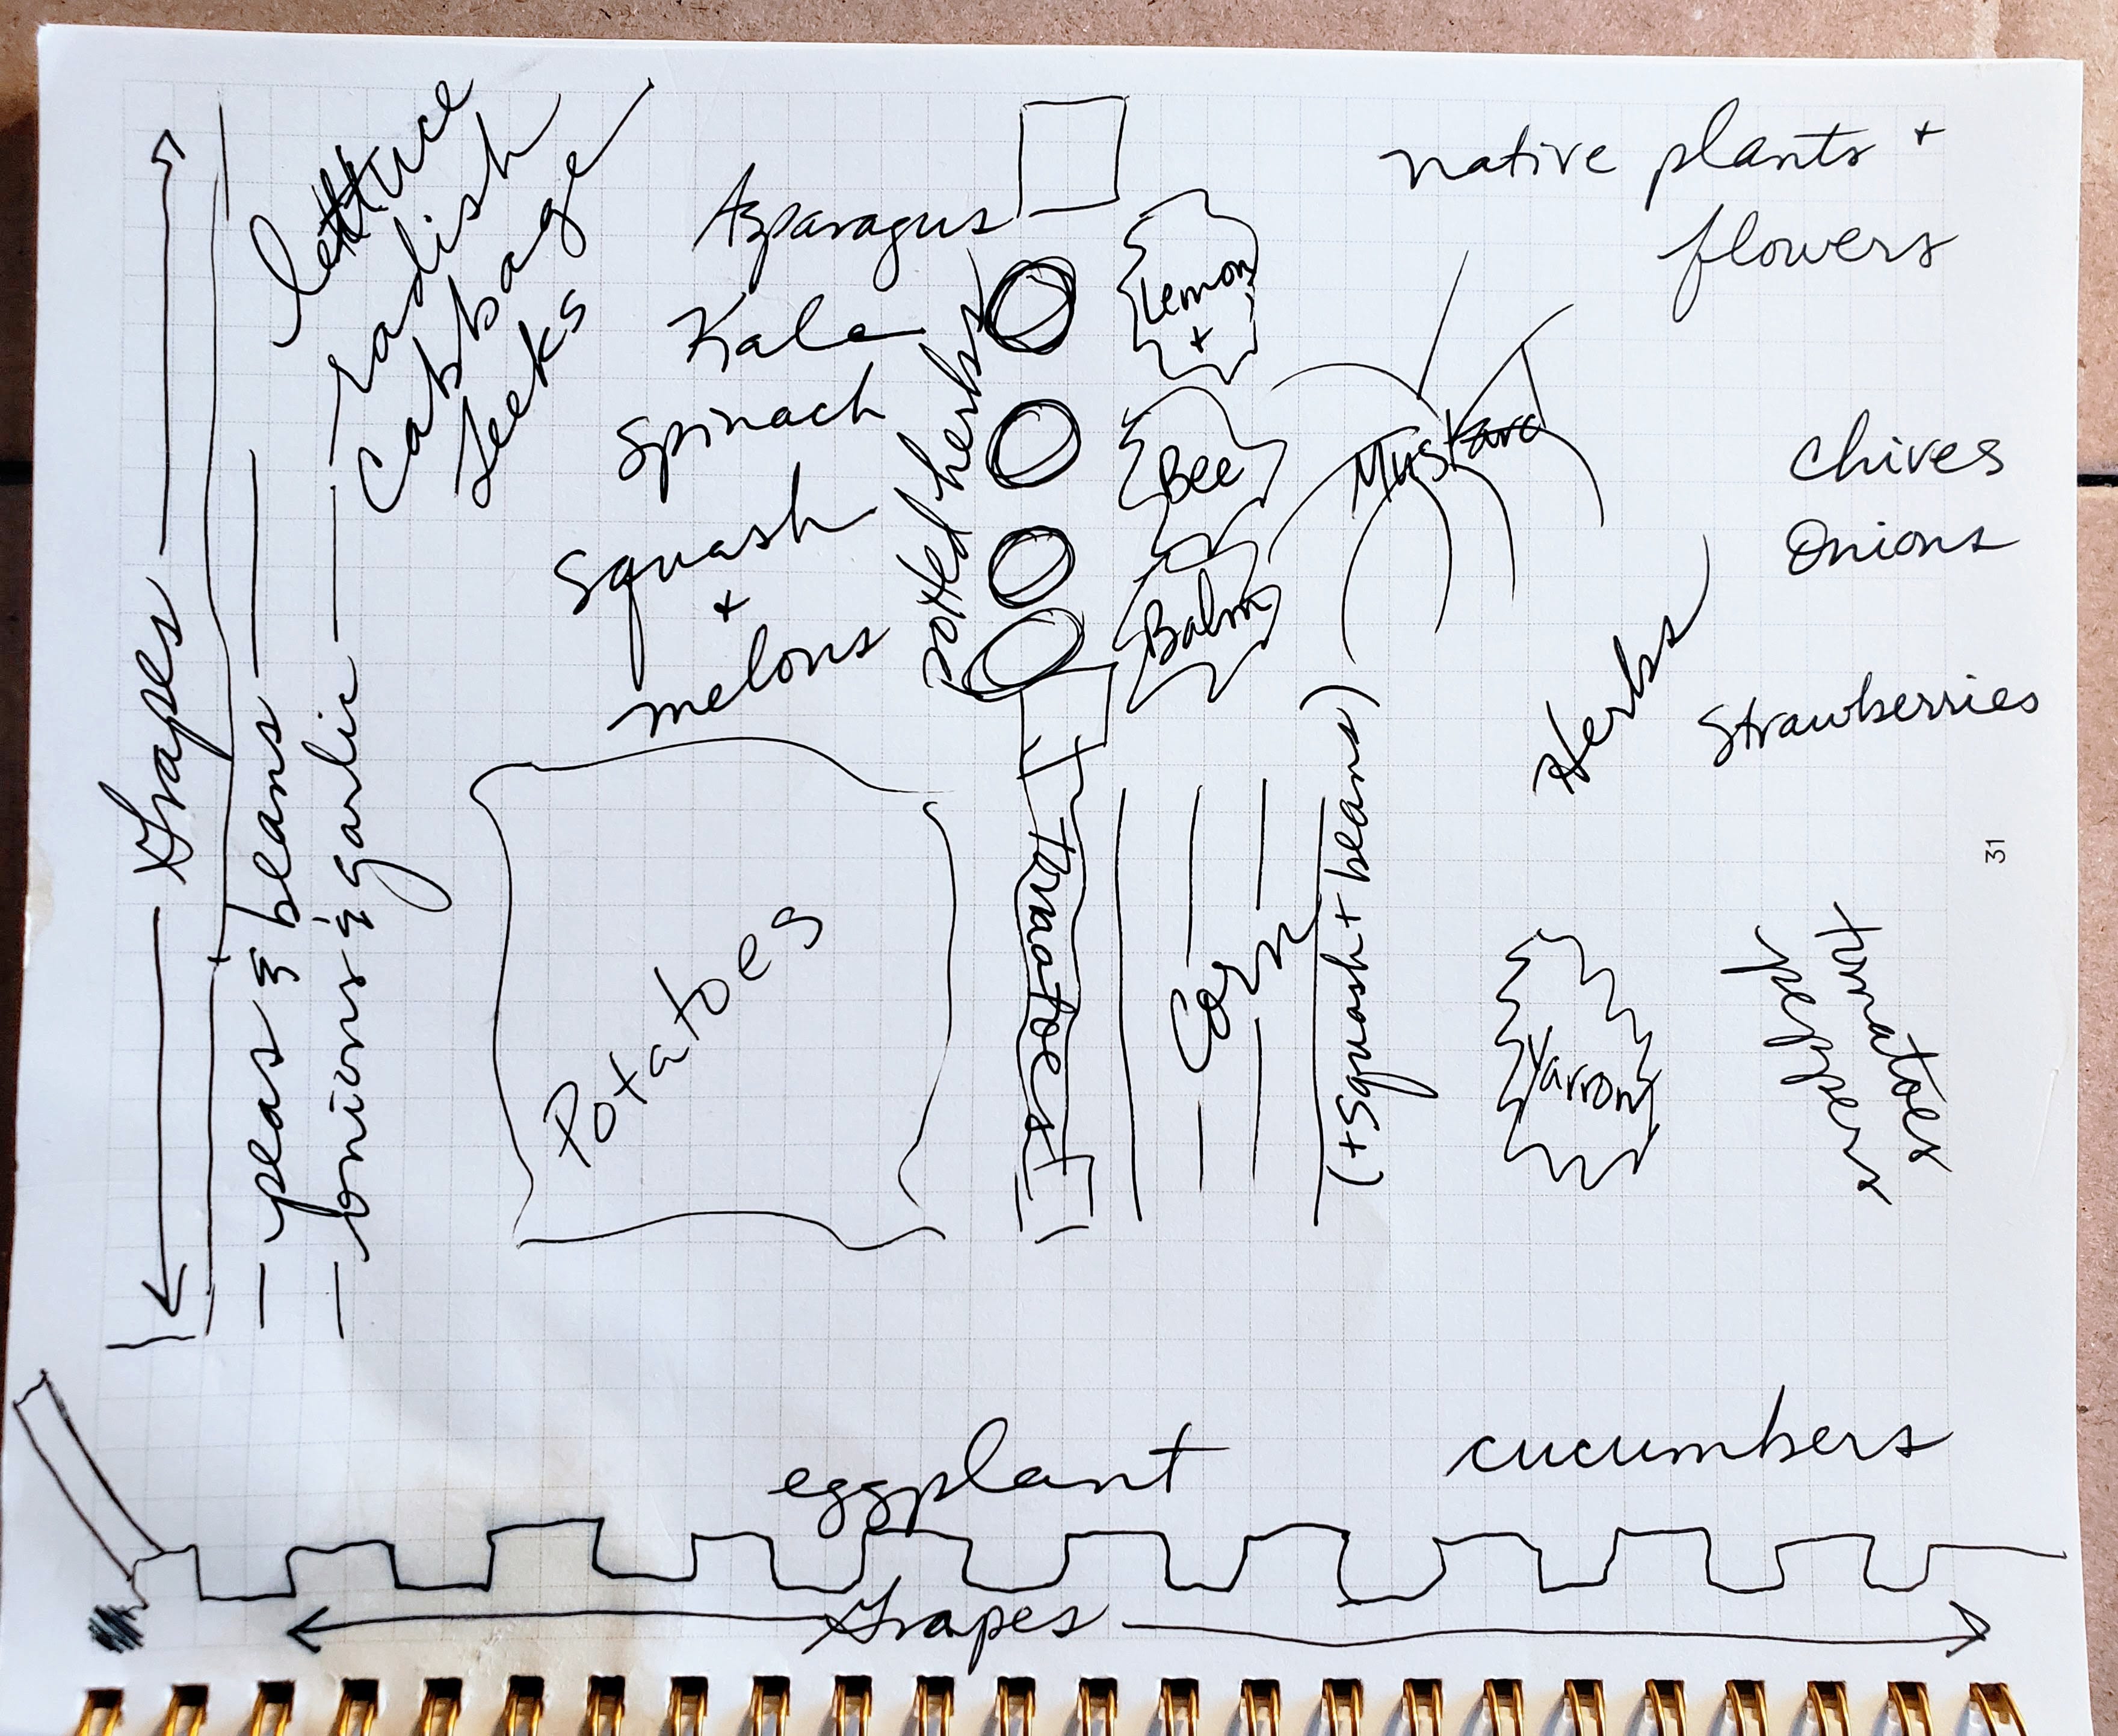 Grapes
peas & beans
onions & garlic
lettuce
radish
cabbage
leeks
Asparagus
Kale
Spinach
Squash
+
melons
potted herbs
Lemon
+
Bee
Balm
Mustard
native plants +
flowers
Chives
Onions
Herbs
Strawberries
31
Potatoes
tomatoes
Corn
(+ Squash + beans)
Yarrow
tomatoes
peppers
eggplant
cucumbers
Grapes